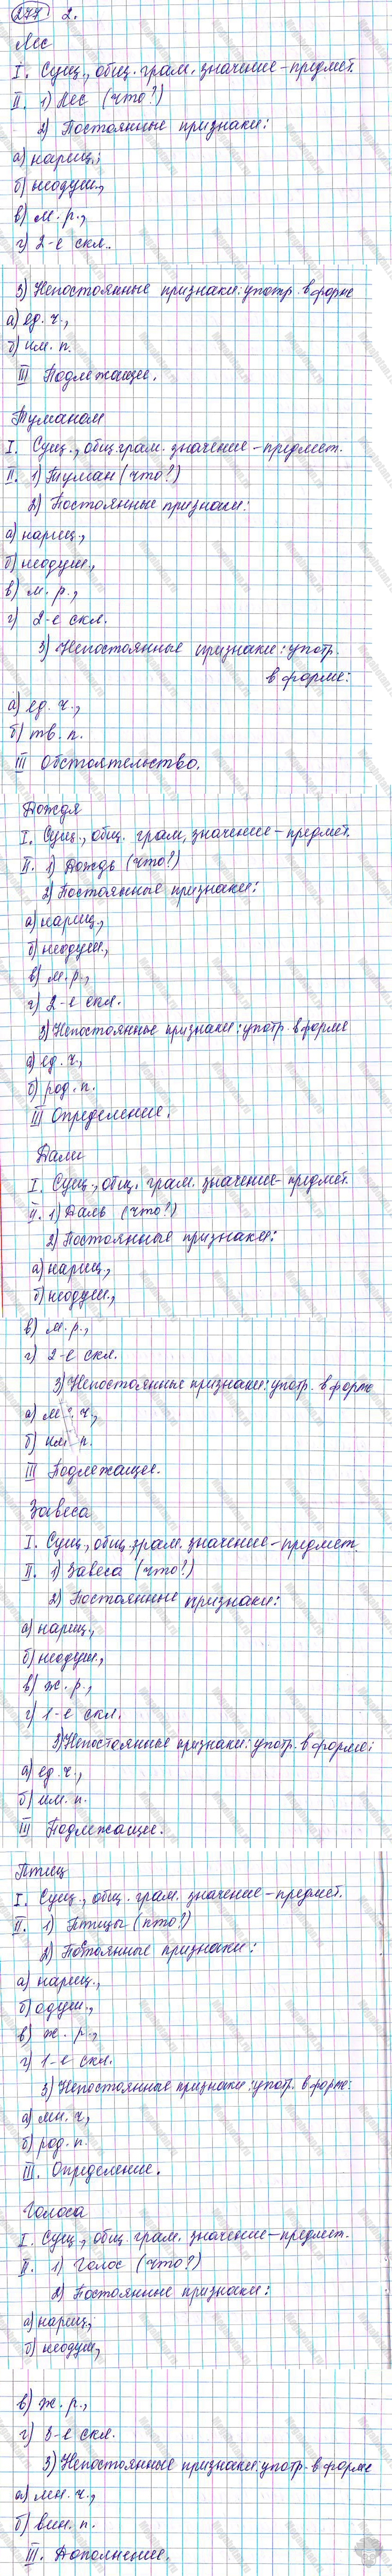 277 2.
Лес
I. Сущ., общ. грам. значение – предмет.
II. 1) Лес (что?)
2) Постоянные признаки:
а) нариц.;
б) неодуш.,
в) м. р.,
г) 2-е скл..
3) Непостоянные признаки: употр. в форме
а) ед. ч.,
б) им. п.
III Подлежащее.
Туманом
I. Сущ., общ. грам. значение – предмет.
II. 1) Туман (что?)
2) Постоянные признаки:
а) нариц.,
б) неодуш.,
в) м. р.,
г) 2-е скл.
3) Непостоянные признаки: употр.
в форме:
а) ед. ч.,
б) тв. п.
III Обстоятельство.
Дождя
I. Сущ., общ. грам. значение – предмет.
II. 1) Дождь (что?)
2) Постоянные признаки:
а) нариц.,
б) неодуш.,
в) м. р.,
г) 2-е скл.
3) Непостоянные признаки: употр. в форме
а) ед. ч.,
б) род. п.
III Определение.
Дали
I. Сущ., общ. грам. значение – предмет.
II. 1) Даль (что?)
2) Постоянные признаки:
а) нариц.,
б) неодуш.,
в) м. р.,
г) 2-е скл.
3) Непостоянные признаки: употр. в форме
а) м ч.,
б) им п.
III Подлежащее.
Завеса
I. Сущ., общ. грам. значение – предмет.
II. 1) Завеса (что?)
2) Постоянные признаки:
а) нариц.,
б) неодуш.,
в) ж. р.,
г) 1-е скл.
3) Непостоянные признаки: употр. в форме:
а) ед. ч.,
б) им. п.
III Подлежащее.
Птиц
I. Сущ., общ. грам. значение – предмет.
II. 1) Птицы (кто?)
2) Постоянные признаки:
а) нариц.,
б) одуш.,
в) ж. р.,
г) 1-е скл.
3) Непостоянные признаки: употр. в форме:
а) мн. ч,
б) род. п.
III. Определение.
Голоса
I. Сущ., общ. грам. значение – предмет.
II. 1) Голос (что?)
2) Постоянные признаки:
а) нариц.;
б) неодуш,
в) ж. р.,
г) 3-е скл.
3) Непостоянные признаки: употр. в форме
а) мн. ч.,
б) вин. п.
III. Дополнение.